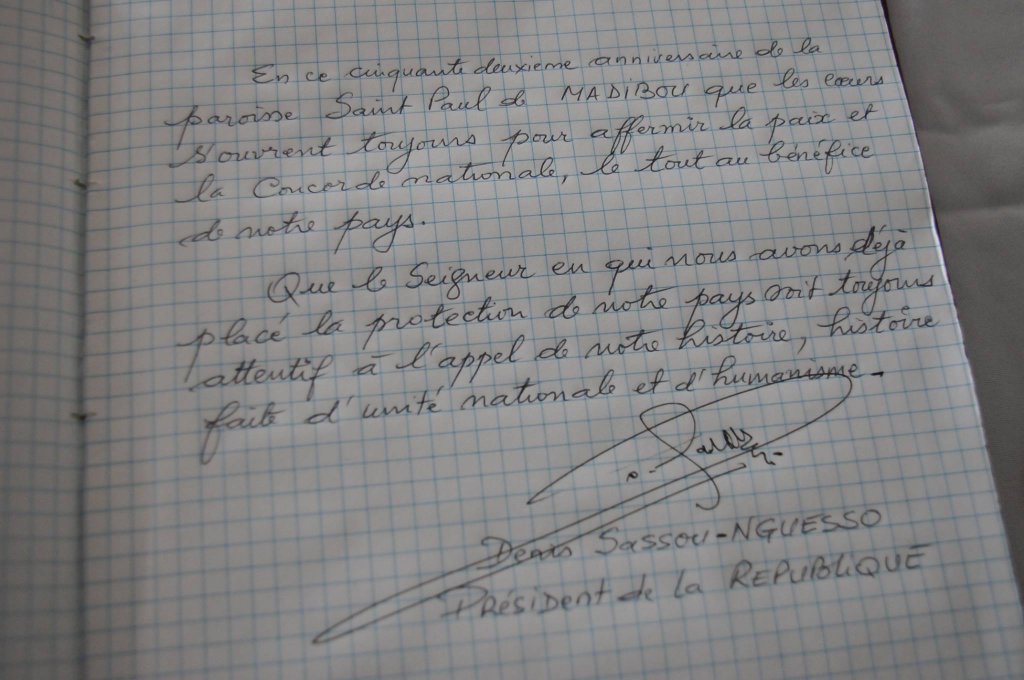 En ce cinquante deuxième anniversaire de la
paroisse Saint Paul de MADIBOU que les cœurs
s'ouvrent toujours pour affermir la paix et
la Concorde nationale, le tout au bénéfice
de notre pays.
Que le Seigneur en qui nous avons déjà
placé la protection de notre pays soit toujours
attentif à l'appel de notre histoire, histoire
faite d'unité nationale et d'humanisme.
Denis SASSOU-NGUESSO
Président de la REPUBLIQUE